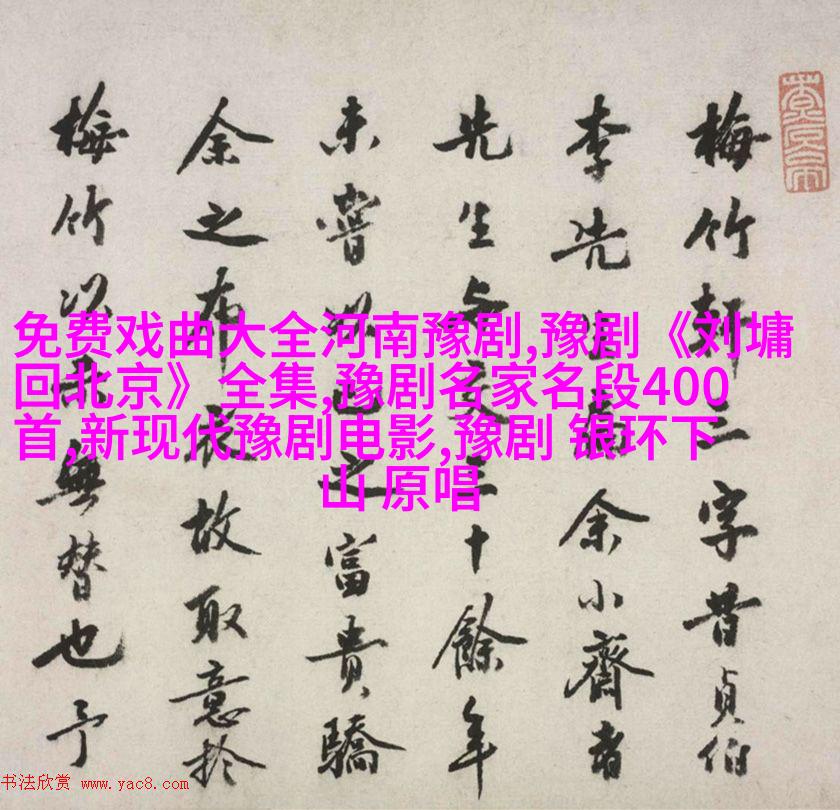 梅竹軒三字昔貞伯
李先生為余小齋書
先生与余交三十餘年
未嘗以己之富貴驕
余之布衣故取意於
梅竹以此無替也予
免费戏曲大全河南豫剧,豫剧《刘墉
回北京》 全集,豫剧名家名段400
首,新现代豫剧电影,豫剧 银环下
山 原唱
书法欣赏 www.yac8.com